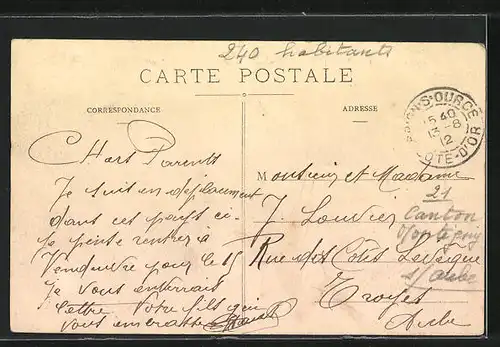 240 habitants
CARTE POSTALE
CORRESPONDANCE
ADRESSE
15 40
13-8
12
CÔTE-D'OR
Chers Parents
Je suis en déplacement
dans ces pays ci
Je pense rentrer à
Vendeuvre pour le 15
Je vous enverrais
lettre. Votre fils qui
vous embrasse
Monsieur et Madame
J. Louvier
Rue des Cotes
Troyes
Aube
21
Canton
Montigny
s/Aube